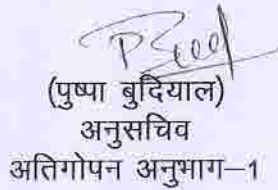 (पुष्पा बुदियाल)
अनुसचिव
अतिगोपन अनुभाग–1